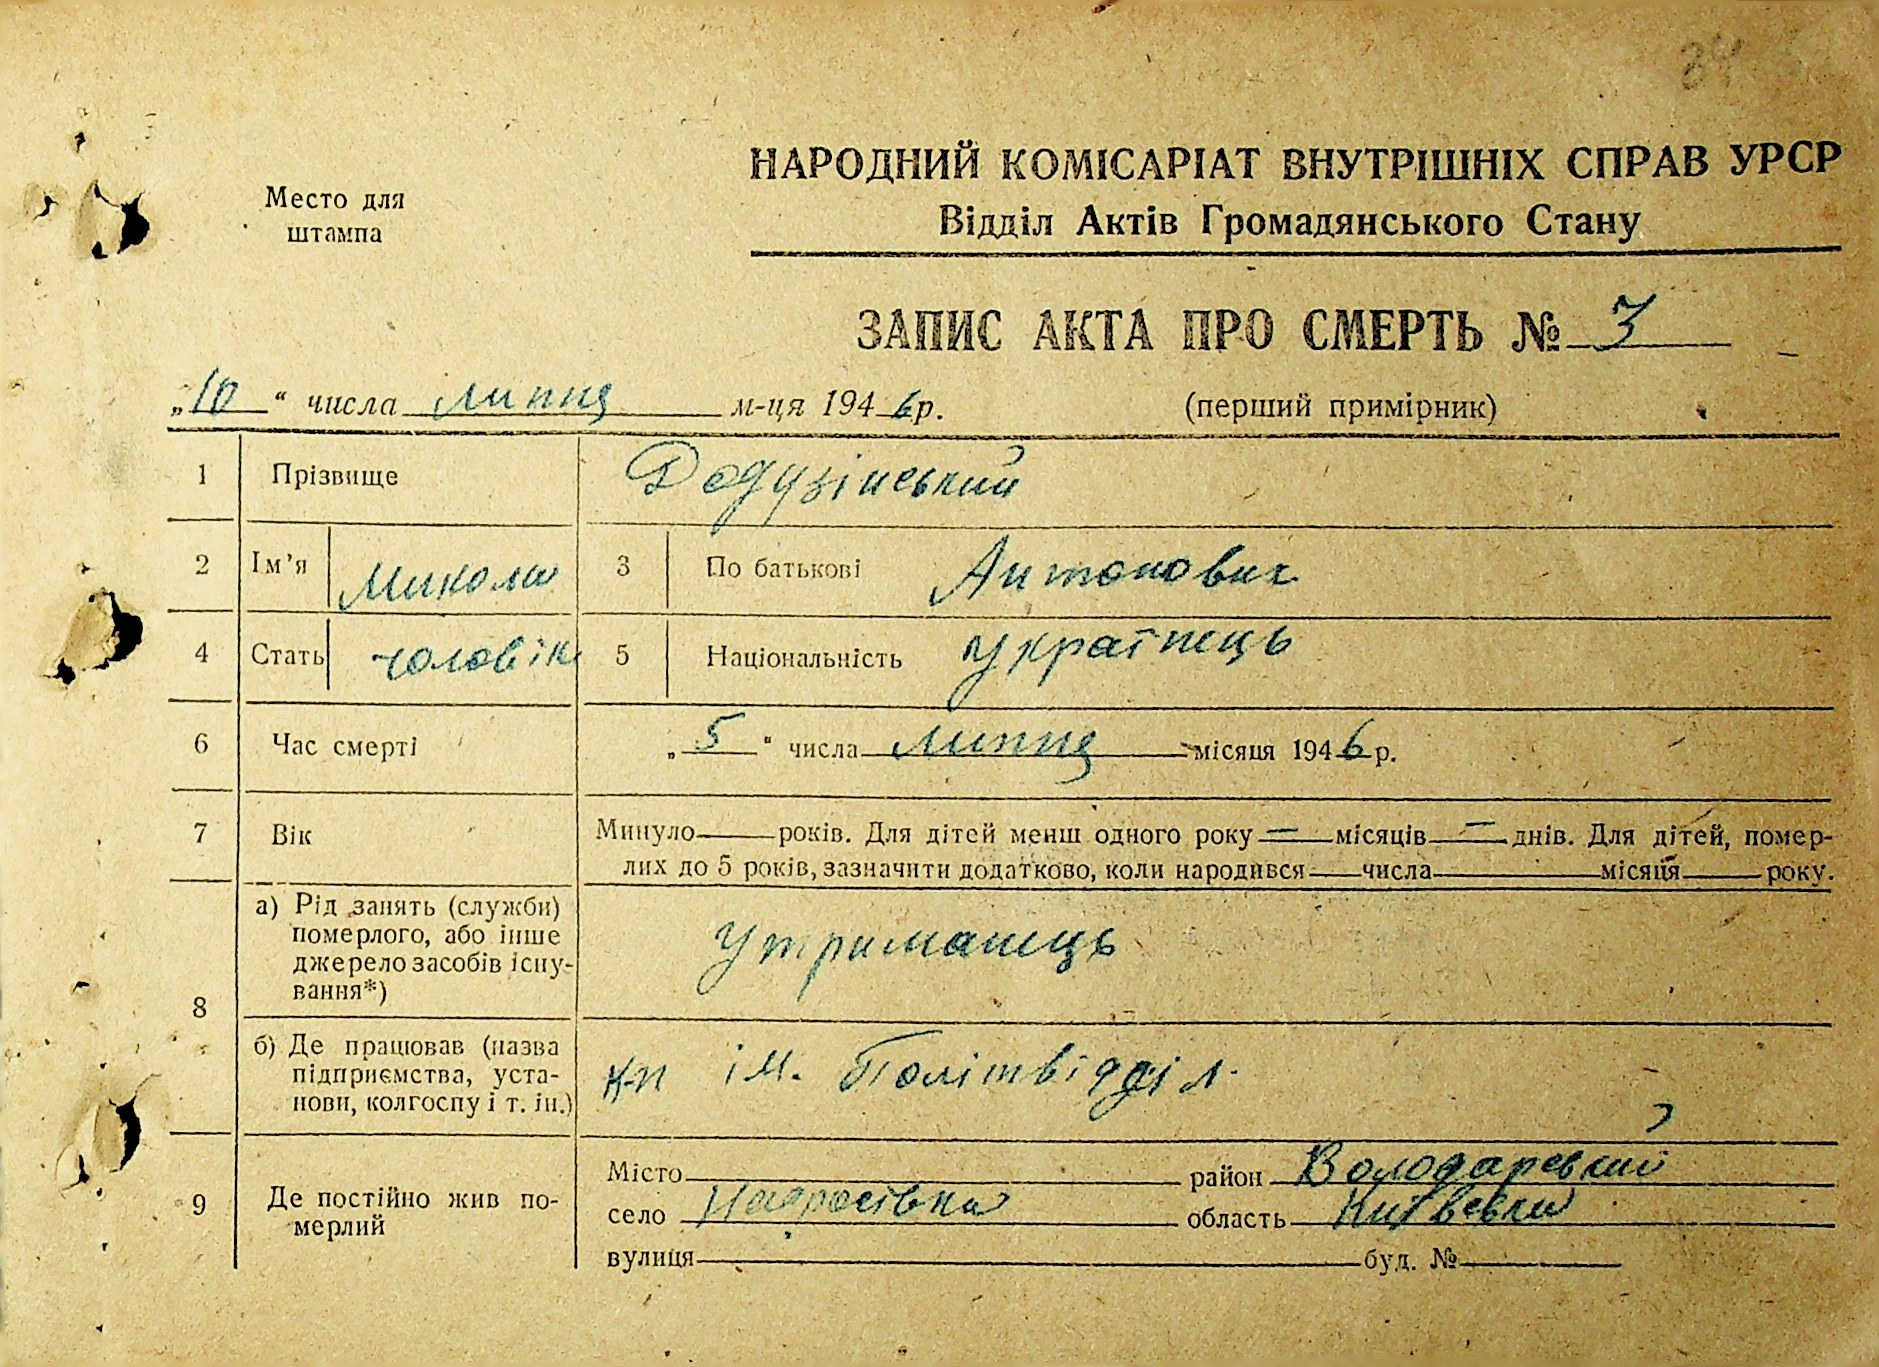 34
НАРОДНИЙ КОМІСАРІАТ ВНУТРІШНІХ СПРАВ УРСР
Место для штампа
Відділ Актів Громадянського Стану
ЗАПИС АКТА ПРО СМЕРТЬ № 7
„10“ числа липня м-ця 1946 р. (перший примірник)
1 Прізвище Додузінський
2 Ім’я Микола 3 По батькові Антонович
4 Стать чоловік 5 Національність Українець
6 Час смерті „5“ числа липня місяця 1946 р.
7 Вік Минуло — років. Для дітей менш одного року — місяців — днів. Для дітей, помер-
лих до 5 років, зазначити додатково, коли народився — числа — місяця — року.
8 а) Рід занять (служби)
померлого, або інше
джерело засобів існу-
вання*)
Утриманець
б) Де працював (назва
підприємства, уста-
нови, колгоспу і т. ін.)
к-п ім. Політвідділ.
9 Де постійно жив по-
мерлий
Місто район Володарський
село Надросівка область Київська
вулиця буд. №